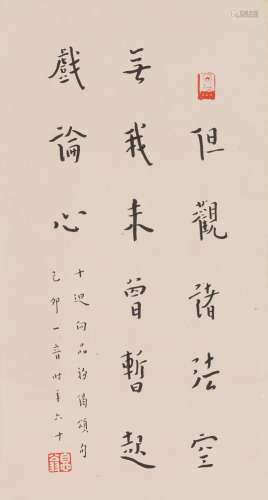 但觀諸法空
無我未曾暫起
戲論心
十迴向品初偈頌句
乙卯一音時年六十